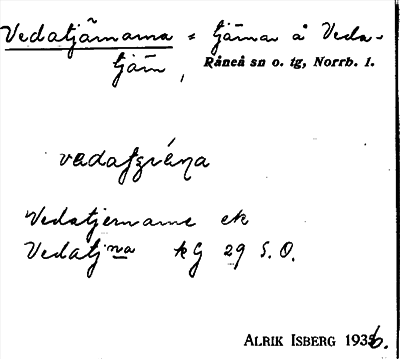 Vedatjärnarna = tjärnar å Veda-
tjärn, Råneå sn o. tg, Norrb. l.
Vedatjernarne ek
Vedatjna kG 29 S.O.
ALRIK ISBERG 1936.